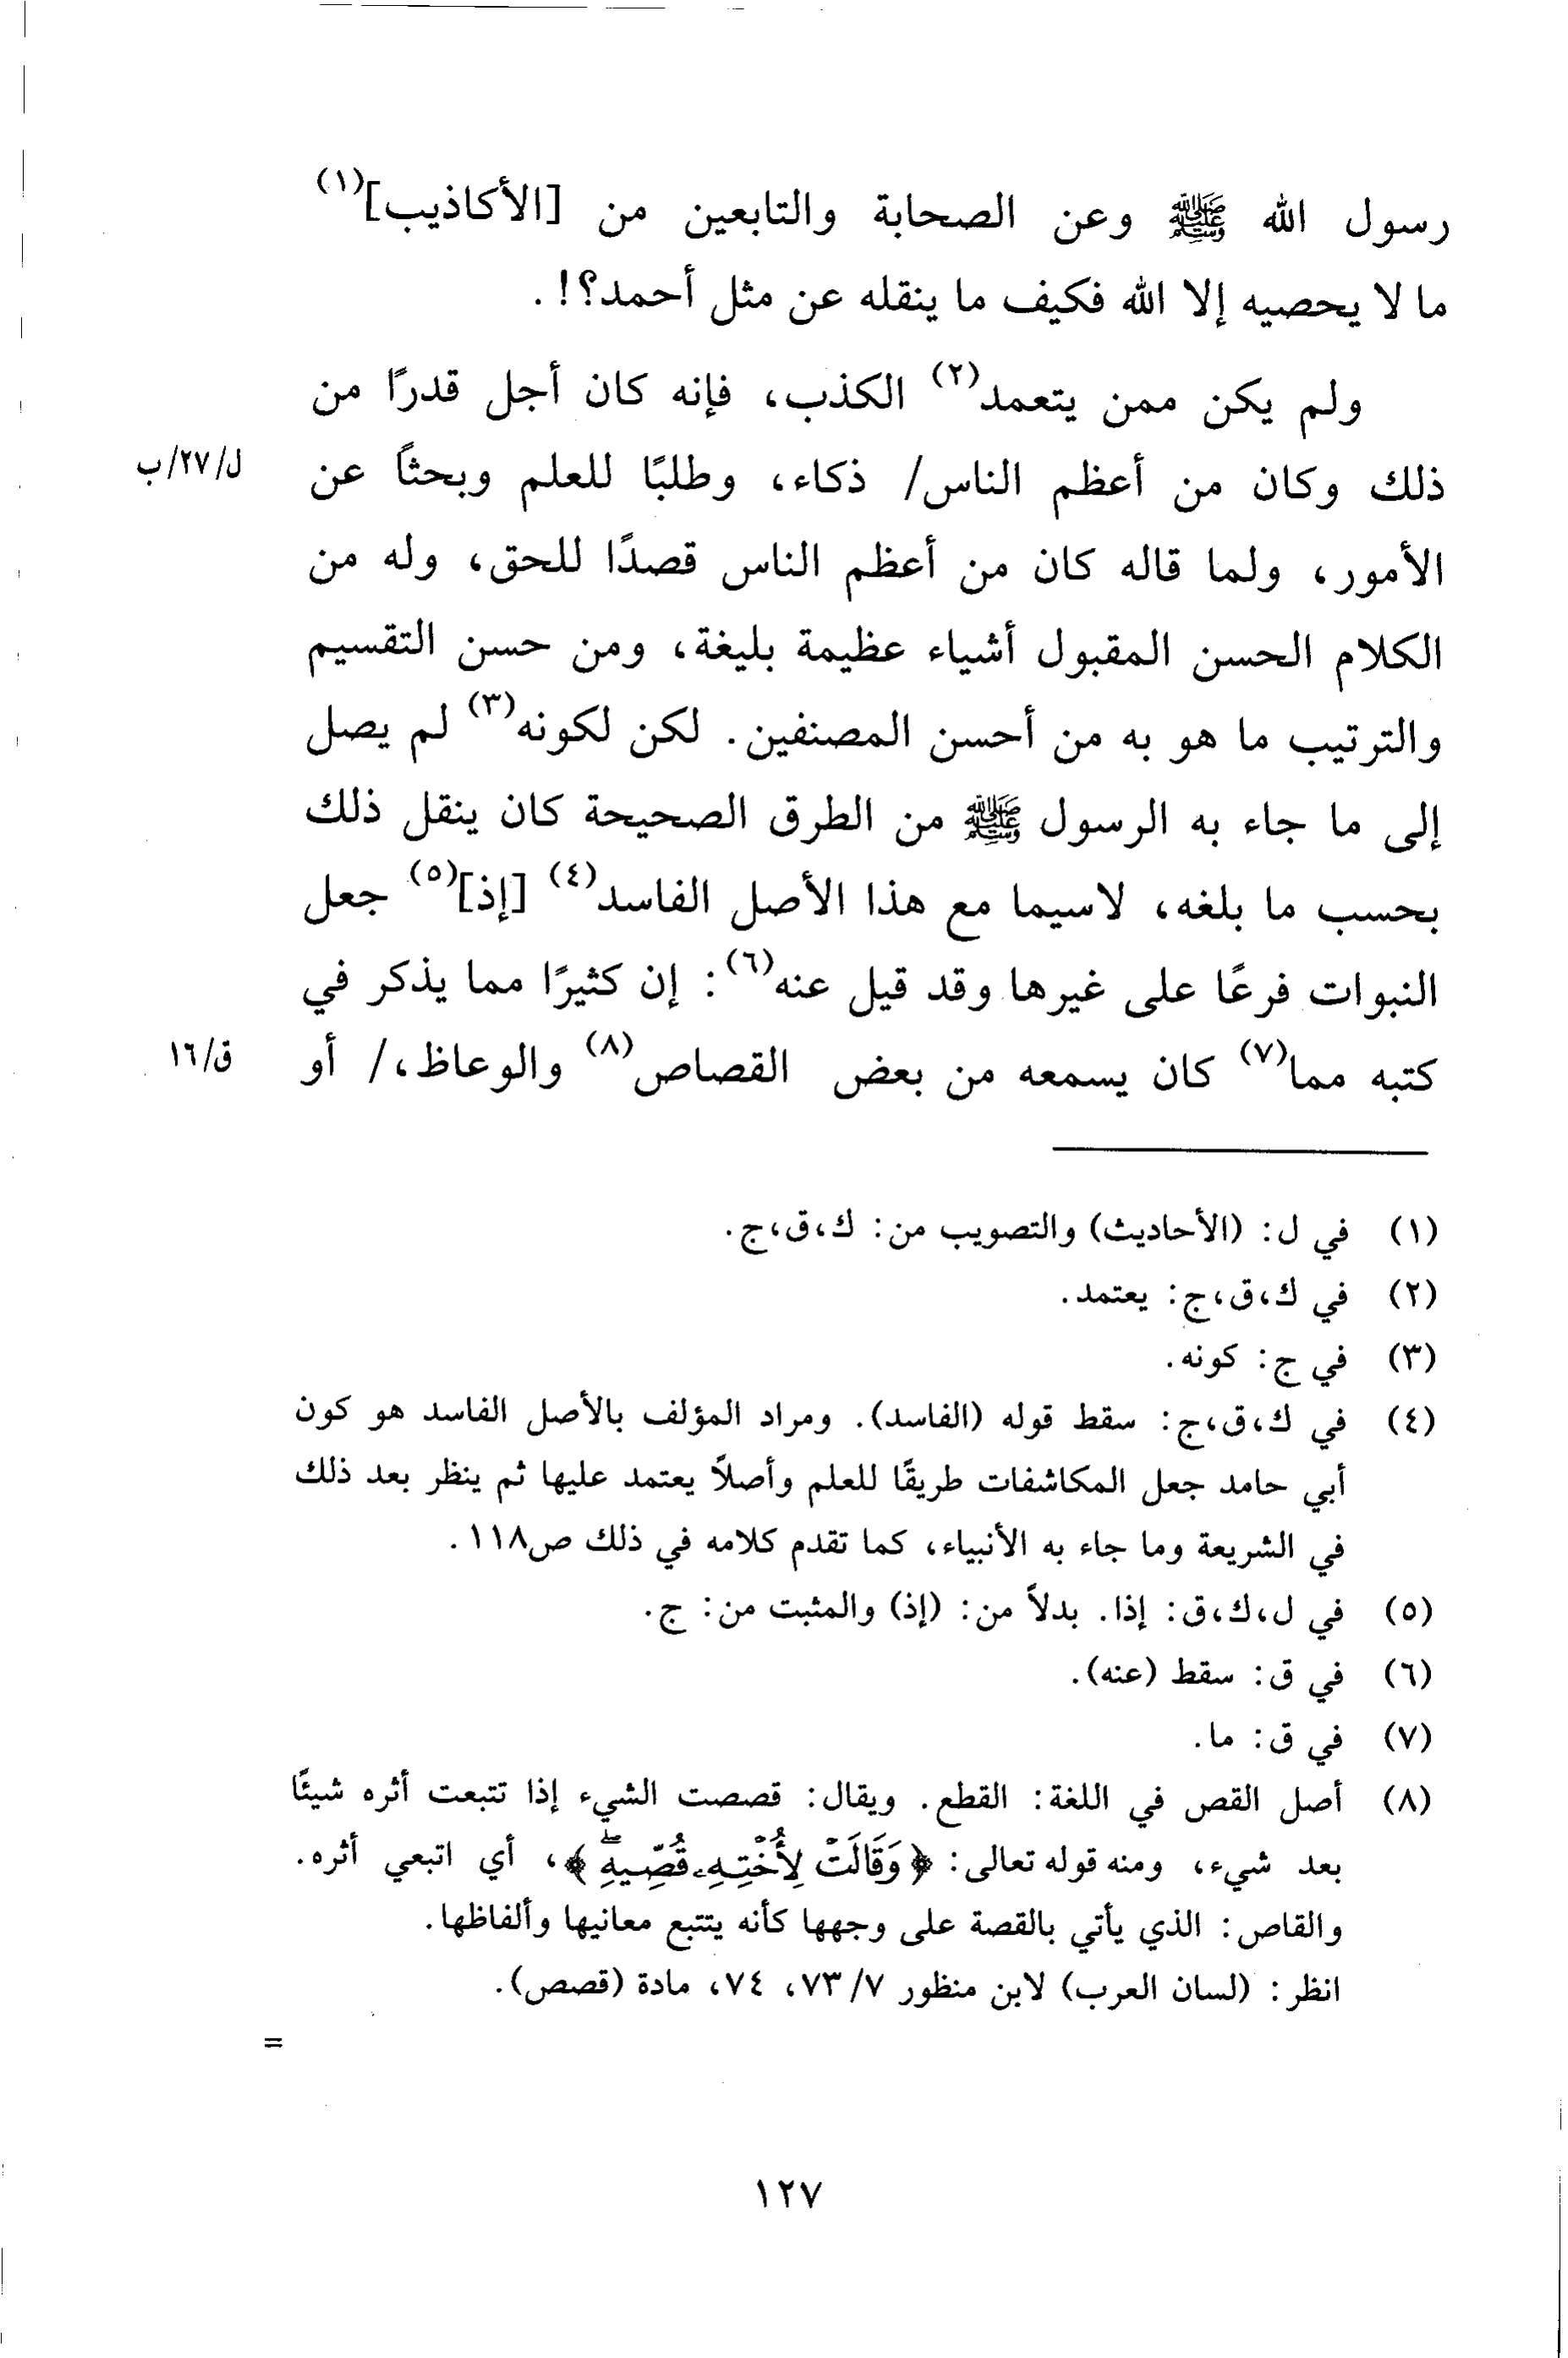 رسول الله ﷺ وعن الصحابة والتابعين من [الأكاذيب](١)
ما لا يحصيه إلا الله فكيف ما ينقله عن مثل أحمد؟! .
ولم يكن ممن يتعمد(٢) الكذب، فإنه كان أجل قدرًا من
ذلك وكان من أعظم الناس/ ذكاء، وطلبًا للعلم وبحثاً عن
ل/٢٧/ب
الأمور، ولما قاله كان من أعظم الناس قصدًا للحق، وله من
الكلام الحسن المقبول أشياء عظيمة بليغة، ومن حسن التقسيم
والترتيب ما هو به من أحسن المصنفين. لكن لكونه(٣) لم يصل
إلى ما جاء به الرسول ﷺ من الطرق الصحيحة كان ينقل ذلك
بحسب ما بلغه، لاسيما مع هذا الأصل الفاسد(٤) [إذ](٥) جعل
النبوات فرعًا على غيرها وقد قيل عنه(٦): إن كثيرًا مما يذكر في
كتبه مما(٧) كان يسمعه من بعض القصاص(٨) والوعاظ،/ أو
ق/١٦
(١) في ل: (الأحاديث) والتصويب من: ك،ق،ج.
(٢) في ك،ق،ج: يعتمد.
(٣) في ج: كونه.
(٤) في ك،ق،ج: سقط قوله (الفاسد). ومراد المؤلف بالأصل الفاسد هو كون
أبي حامد جعل المكاشفات طريقًا للعلم وأصلاً يعتمد عليها ثم ينظر بعد ذلك
في الشريعة وما جاء به الأنبياء، كما تقدم كلامه في ذلك ص١١٨.
(٥) في ل،ك،ق: إذا. بدلاً من: (إذ) والمثبت من: ج.
(٦) في ق: سقط (عنه).
(٧) في ق: ما.
(٨) أصل القص في اللغة: القطع. ويقال: قصصت الشيء إذا تتبعت أثره شيئًا
بعد شيء، ومنه قوله تعالى: ﴿وَقَالَتْ لِأُخْتِهِۦ قُصِّيهِۖ﴾، أي اتبعي أثره.
والقاص: الذي يأتي بالقصة على وجهها كأنه يتتبع معانيها وألفاظها.
انظر: (لسان العرب) لابن منظور ٧/ ٧٣، ٧٤، مادة (قصص).
=
١٢٧